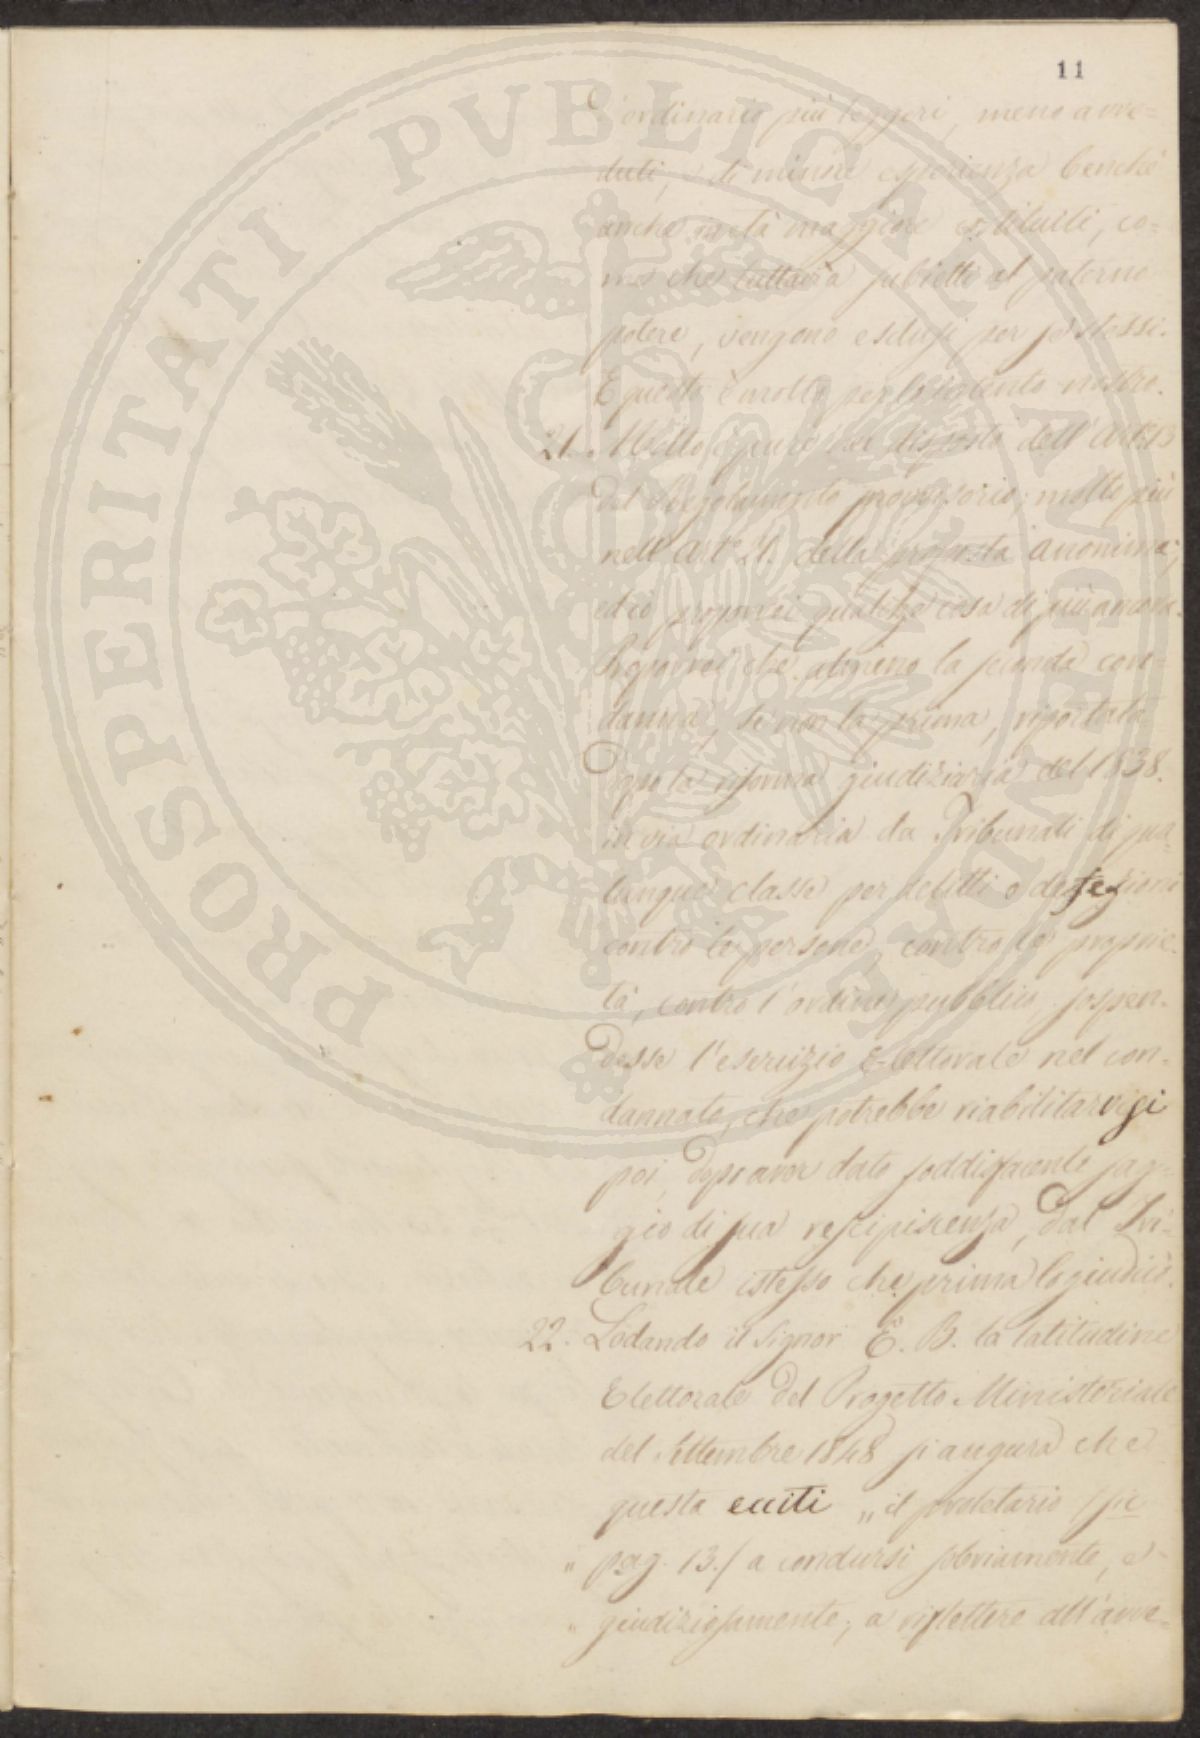 11
d'ordinario più leggeri, meno avve=
duti, e di minore esperienza benchè
anche in età maggiore costituiti, co=
me che tuttavia subietti al paterno
potere, vengono esclusi per se stessi.
E questo è molto per l'intento nostro.
21. Molto pure è nel disposto dell'Art. 13
del Regolamento provvisorio; molto più
nell'Art. 21. della proposta anonima;
ed io proporrei qualche cosa di più ancora.
Proporrei che almeno la seconda con=
danna, se non la prima, riportata
dopo la riforma giudiziaria del 1838.
in via ordinaria da Tribunali di qua=
lunque classe per delitti e
contro le persone, contro le proprie=
tà, contro l'ordine pubblico, sospen=
desse l'esercizio Elettorale nel con=
dannato, che potrebbe riabilitarvisi
poi, dopo aver dato soddisfacente sag=
gio di sua rescipiscenza, dal Tri=
bunale istesso che prima lo giudicò.
22. Lodando il Signor E. B. la latitudine
Elettorale del Progetto Ministeriale
del Settembre 1848 si augura che
questa ecciti „ il proletario (sic
„ pag. 13.) a condursi sobriamente, e
„ giudiziosamente; a riflettere all'avve=
PROSPERITATI PVBLICAE AVGENDAE